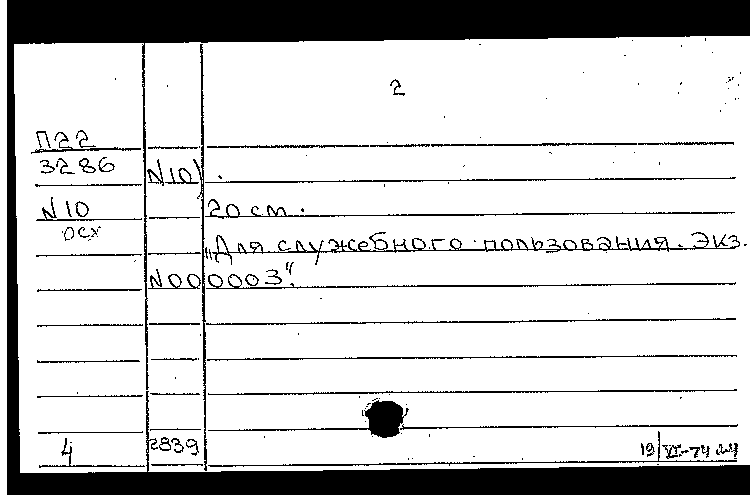 2
П22
3286 N10).
N10 20 см.
осх
„Для служебного пользования. Экз.
N000003".
4 2839 19/VI-74